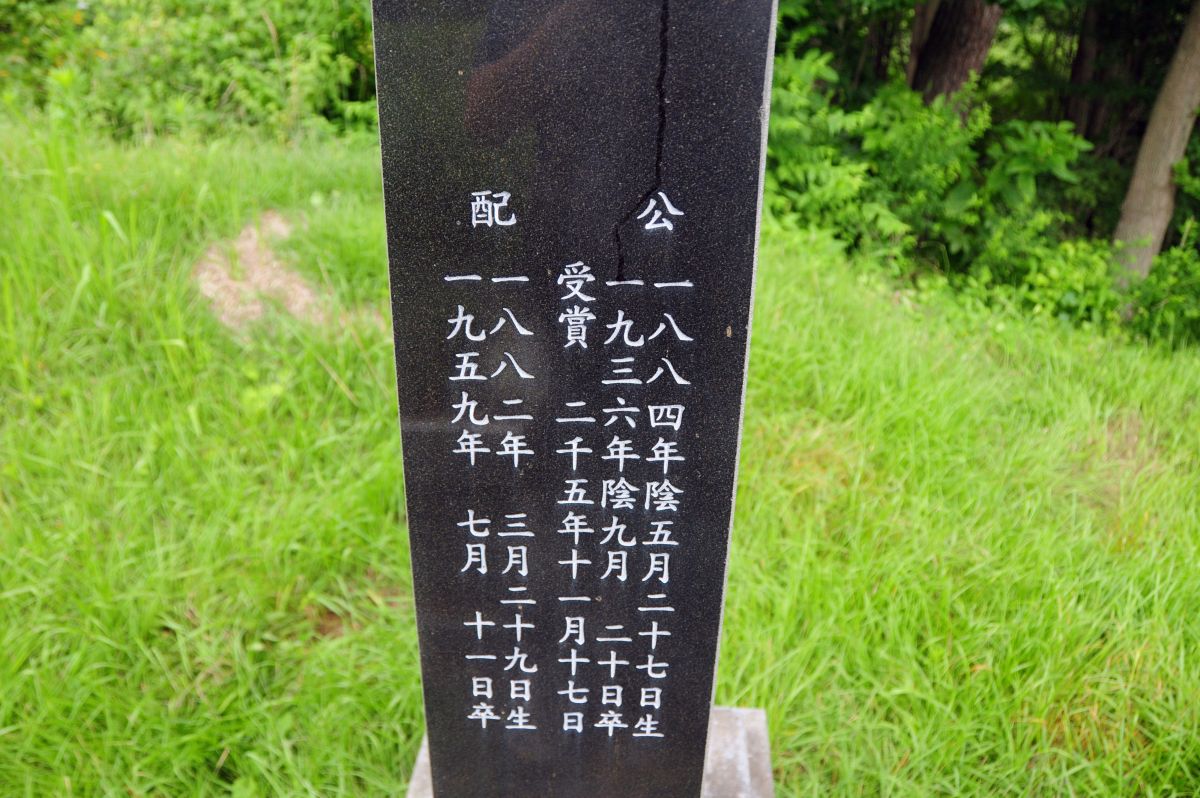 公
一八八四年陰五月二十七日生
一九三六年陰九月 二十日卒
受賞 二千五年十一月十七日
配
一八八二年 三月二十九日生
一九五九年 七月 十一日卒